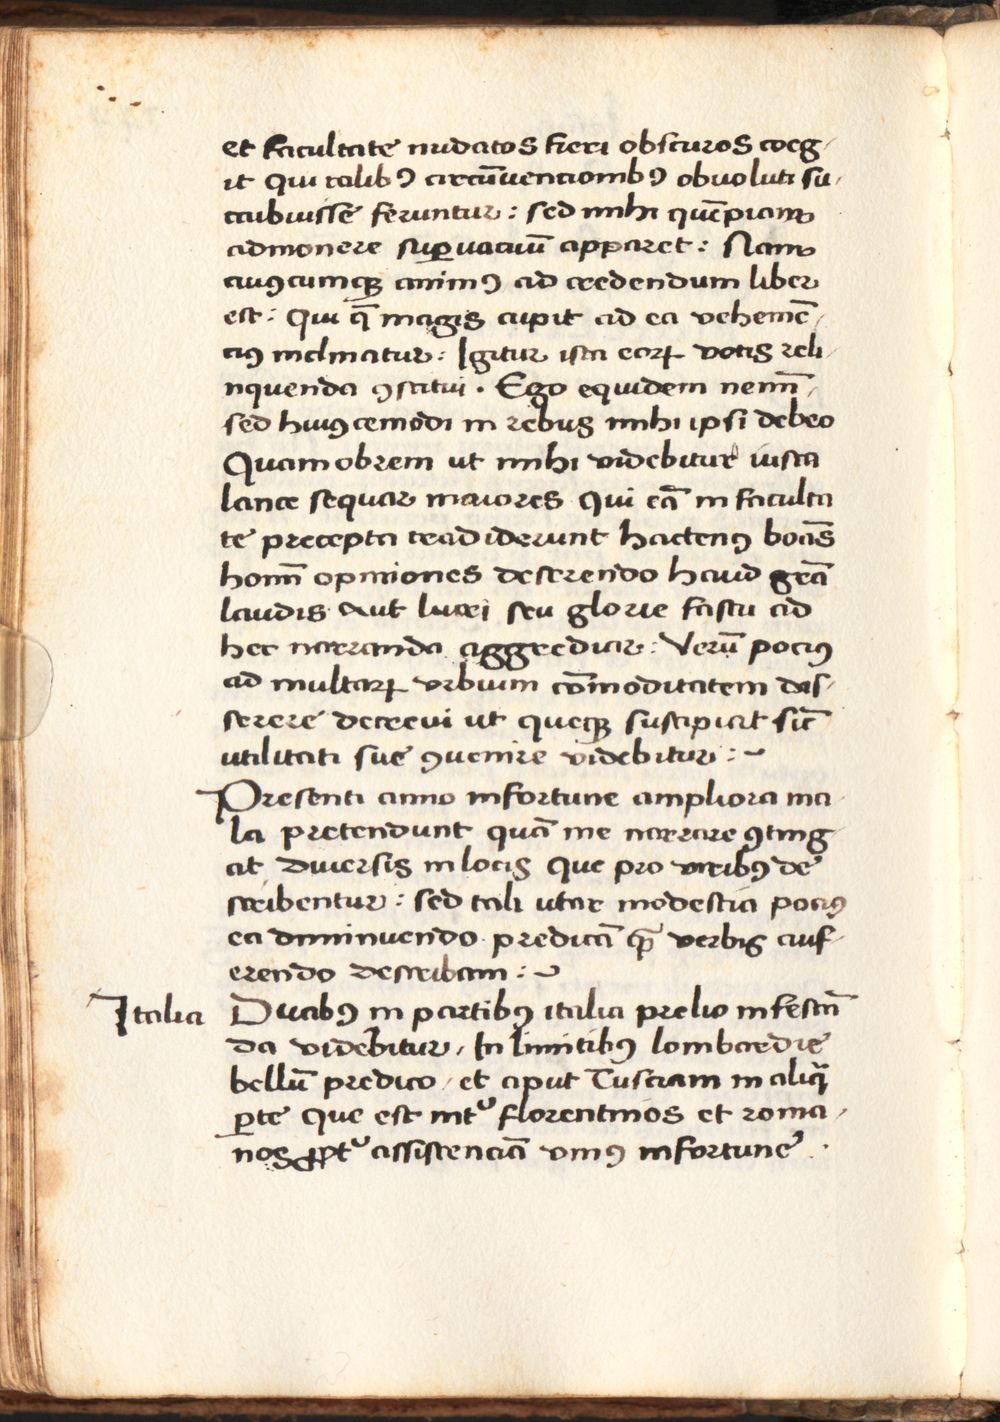 et facultate nudatos fieri obscuros coeg-
it Qui talibꝯ circū̄uencionibꝯ obuoluti su-
cubuisse feruntur : sed mihi quēpiam
admonere suꝑuacuū apparet : Nam
cuiꝯcumqꝫ animꝯ ad credendum liber
est : Qui q̄ magis cupit ad ea vehemē-
cius inclinatur : Igitur ista eoꝝ votis reli-
nquenda ꝯstitui . Ego equidem nemī-
sed huiꝯcemodi in rebus mihi ipsi debeo
Quamobrem ut mihi videbitur iusta
lance sequar maiores Qui eā in faculta
te precepta tradiderunt hactenꝯ boās
homī opiniones deserendo haud grā
laudis Aut lucri seu glorie fastu ad
hec narranda aggrediar : Verū pociꝯ
ad multaꝝ vrbium cōmoditatem des-
serere decreui ut queqꝫ suscipiat sic̄
utilitati sue ꝯuenire videbitur : ~
Presenti anno infortune ampliora ma-
la pretendunt quā me narrare ꝯting-
at diuersis in locis Que pro viribꝯ de
scribentur : sed tali utar modestia pociꝯ
ea diminuendo predicā qꝫ̄ verbis auf-
erendo describam : ~
Italia Duabꝯ in partibꝯ italia prelio infestā
da videbitur , In limitibꝯ lombardie
bellū predico , et aput Tusciam in aliq̄
ꝑte Que est intᵛ florentinos et roma-
nos ꝓptᵛ assistenciā vniꝯ infortune .